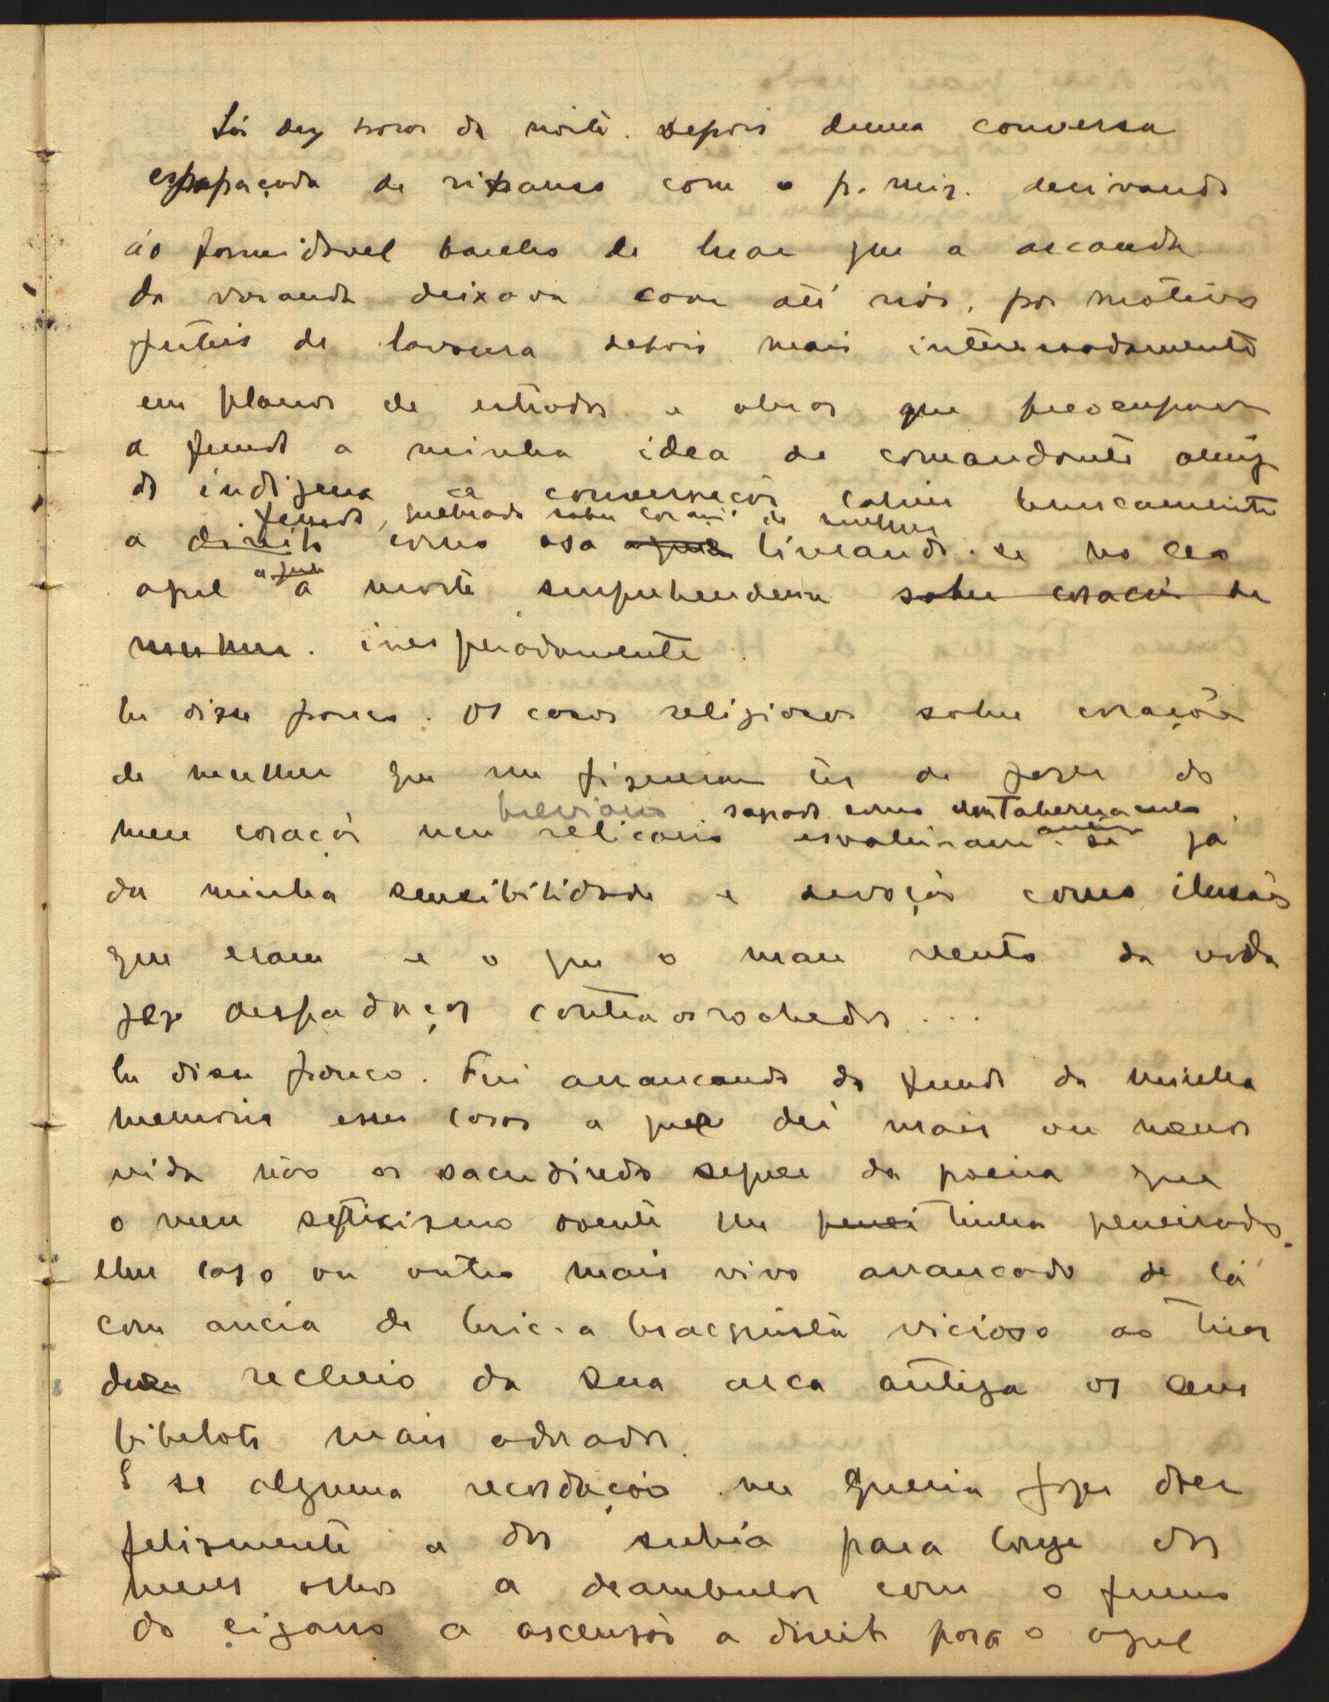 Lá dez horas da noite. Depois duma conversa
espapaçada de ripanso com o p. mig. derivando
ao formidavel banho de luar que a arcanda
da varanda deixava coar até nós, por motivos
futeis de lavoura depois mais interessadamente
em planos de estradas e obras que preocupava
a fundo a minha idea de comandante amigo
do indigena a conversação cahiu bruscamente
fundo, quebrado sobre coração de mulher
a direito como asa librando-se no ceo
azul a que a morte surprehendera sobre coração de
mulher. inesperadamente.
Eu disse pouco. Os casos religiosos sobre corações
de mulher que me fizeram ter de fazer do
breviario sagrado como um Tabernaculo
meu coração um relicario esvahiram-se já
da minha sensibilidade e devoção como ilusões
que eram e o que o mau vento da vida
fez desfadaços contra os rochedos ...
Eu disse pouco. Fui arrancando do fundo da minha
memoria esses casos a que dei mais ou menos
vida não os sacudindo sequer da poeira que
o meu septicismo doente me tinha peneirado.
Um caso ou outro mais vivo arrancado de lá
com ancia de bric-a braquista vicioso ao tirar
dum recheio da sua arca antiga os seus
bibelots mais adorados.
E se alguma recordação me queria fazer doer
felizmente a dor subia para longe dos
meus olhos a deambular com o fumo
do cigarro a ascensão a direito para o azul